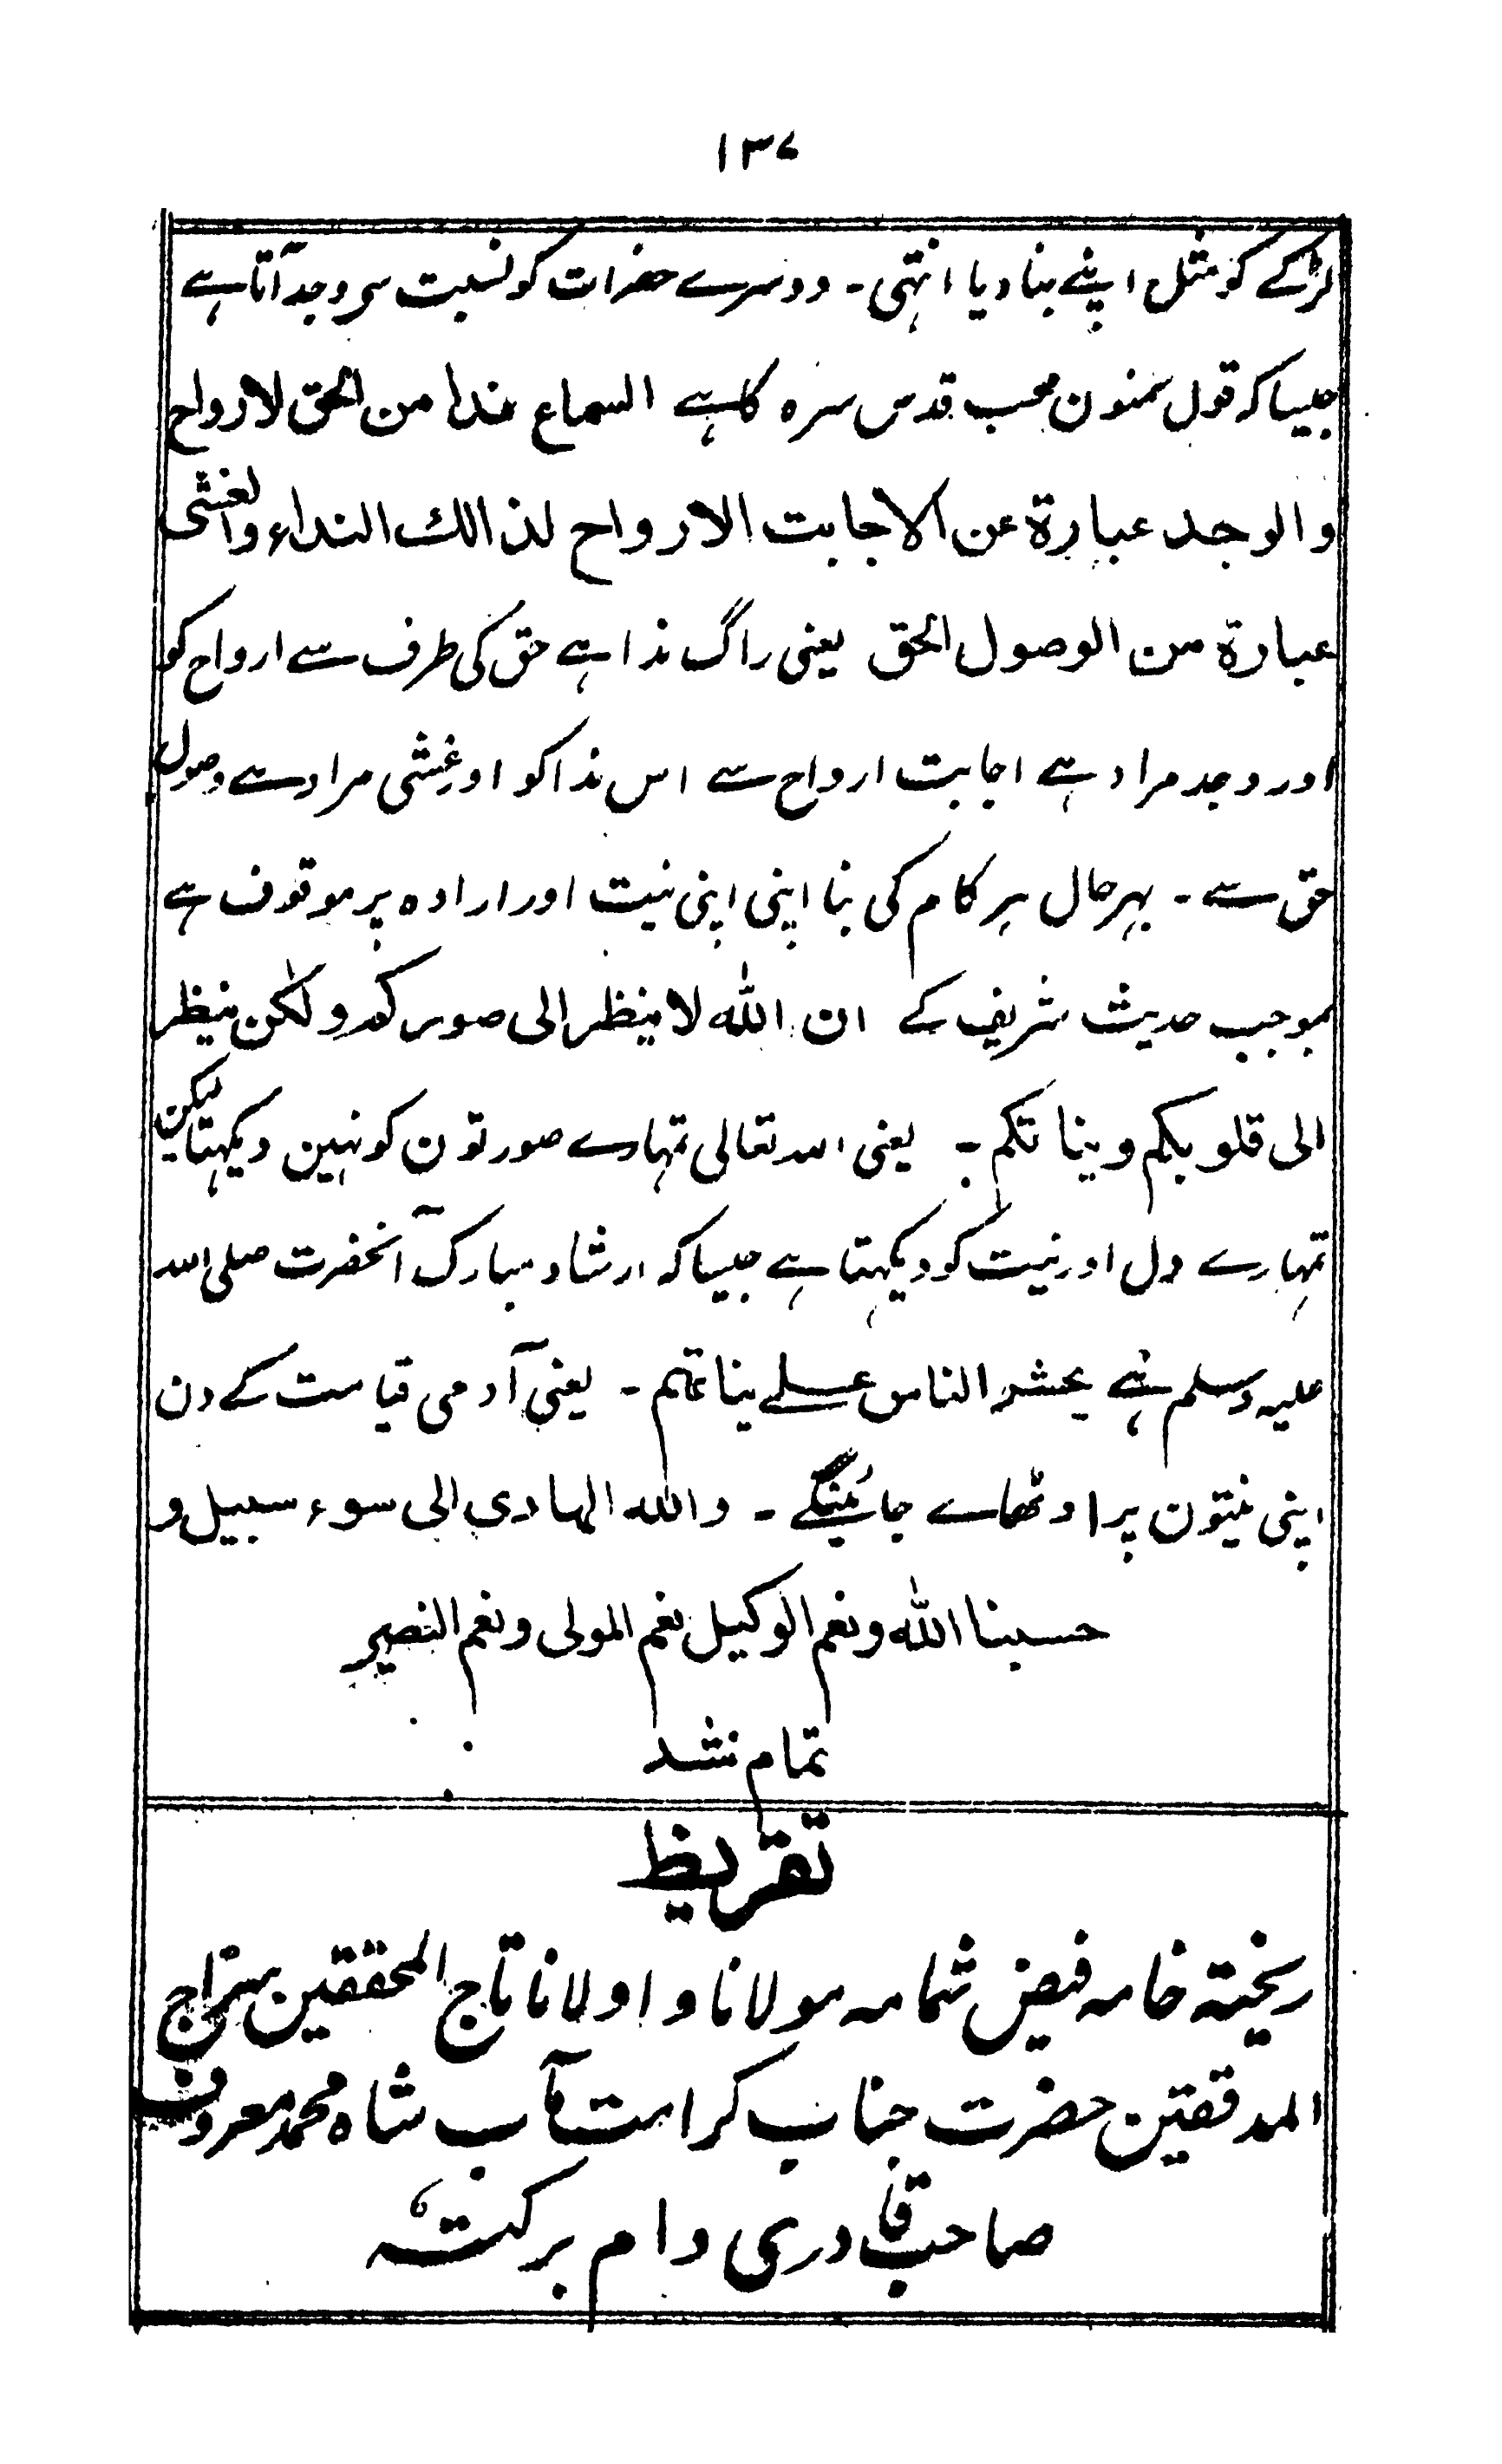 ۱۳۷
لڑکے کو مثل اپنے بنا دیا انتہی۔ دوسرے حضرات کو نسبت سی وجد آتا ہے
جیسا کہ قول سمنون محب قدس سرہ کا ہے السماع ندا من الحق لارواح
والوجد عبارة عن الاجابت الارواح لذالك النداء والغشی
عبارة من الوصول الحق یعنی راگ ندا ہے حق کی طرف سے ارواح کو
اور وجد مراد ہے اجابت ارواح سے اس ندا کو اور غشی مراد ہے وصول
حق سے۔ بہر حال ہر کام کی بنا اپنی اپنی نیت اور ارادہ پر موقوف ہے
بموجب حدیث شریف کے ان الله لا ینظر الی صورکم ولکن ینظر
الی قلوبکم ونیاتکم۔ یعنی اللہ تعالی تمہارے صورتون کو نہین دیکہتا لیکن
تمہارے دل اور نیت کو دیکہتا ہے جیسا کہ ارشاد مبارک آنحضرت صلی اللہ
علیہ وسلم ہے یحشر الناس علے نیاتہم۔ یعنی آدمی قیامت کے دن
اپنی نیتون پر اوٹھاے جائینگے۔ والله الهادی الی سوء سبیل و
حسبنا الله ونعم الوکیل نعم المولی ونعم النصیر
تمام شد
تقریظ
ریختۂ خامہ فیض شمامہ مولانا و اولانا تاج المحققین سراج
المدققین حضرت جناب کرامت مآب شاہ محمد معروف
صاحب قادری دام برکتہ